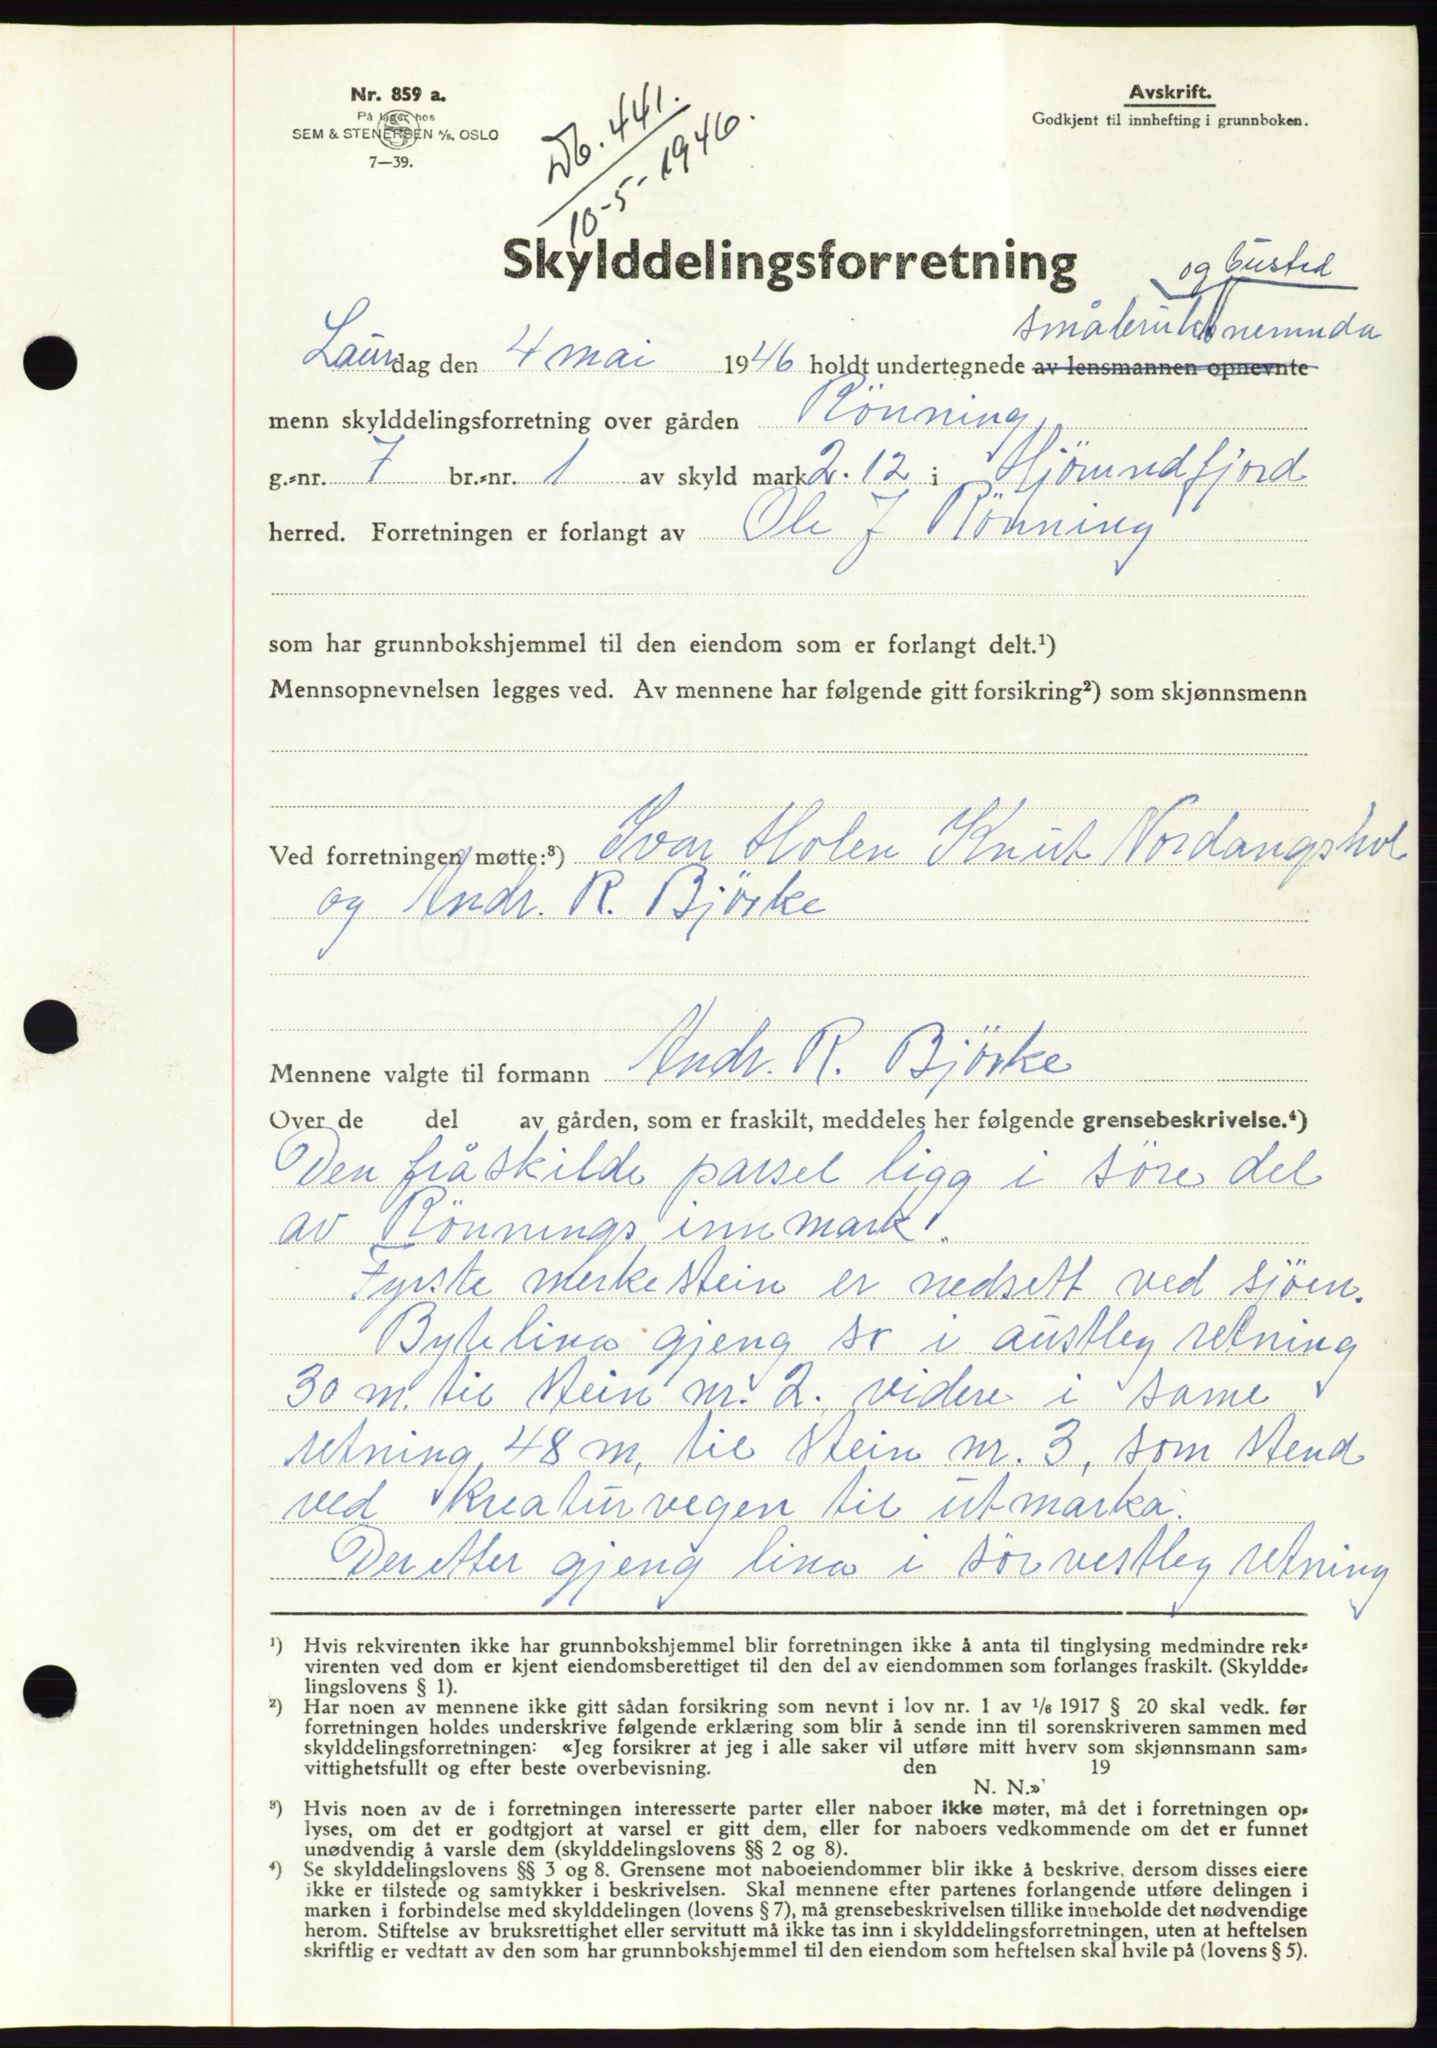 Nr. 859 a.
På lager hos
SEM & STENERSEN A/S, OSLO
7—39.
Db. 441.
10-5-1946.
Avskrift.
Godkjent til innhefting i grunnboken.
Skylddelingsforretning
og bustad
småbruksnemnda
Laurdag den 4 mai 1946 holdt undertegnede av lensmannen opnevnte
menn skylddelingsforretning over gården Rönning
g.=nr. 7 br.=nr. 1 av skyld mark 2.12 i Hjörundfjord
herred. Forretningen er forlangt av Ole J Rönning
som har grunnbokshjemmel til den eiendom som er forlangt delt.¹)
Mennsopnevnelsen legges ved. Av mennene har følgende gitt forsikring²) som skjønnsmenn
Ved forretningen møtte:³) Ivar Holen Knut Nordangshol
og Andr. R. Björke
Mennene valgte til formann Andr. R. Björke
Over de del av gården, som er fraskilt, meddeles her følgende grensebeskrivelse.⁴)
Den fråskilde parsel ligg i söre del
av Rönnings innmark.
Fyrste merkestein er nedsett ved sjöen.
Bytelina gjeng so i austleg retning
30 m. til stein nr. 2. videre i same
retning 48 m, til stein nr. 3, som stend
ved kreaturvegen til utmarka.
Deretter gjeng lina i sörvestleg retning
¹) Hvis rekvirenten ikke har grunnbokshjemmel blir forretningen ikke å anta til tinglysing medmindre rek=
virenten ved dom er kjent eiendomsberettiget til den del av eiendommen som forlanges fraskilt. (Skyldde=
lingslovens § 1).
²) Har noen av mennene ikke gitt sådan forsikring som nevnt i lov nr. 1 av 1/6 1917 § 20 skal vedk. før
forretningen holdes underskrive følgende erklæring som blir å sende inn til sorenskriveren sammen med
skylddelingsforretningen: «Jeg forsikrer at jeg i alle saker vil utføre mitt hverv som skjønnsmann sam=
vittighetsfullt og efter beste overbevisning. den 19
N. N.»
³) Hvis noen av de i forretningen interesserte parter eller naboer ikke møter, må det i forretningen op=
lyses, om det er godtgjort at varsel er gitt dem, eller for naboers vedkommende om det er funnet
unødvendig å varsle dem (skylddelingslovens §§ 2 og 8).
⁴) Se skylddelingslovens §§ 3 og 8. Grensene mot naboeiendommer blir ikke å beskrive, dersom disses eiere
ikke er tilstede og samtykker i beskrivelsen. Skal mennene efter partenes forlangende utføre delingen i
marken i forbindelse med skylddelingen (lovens § 7), må grensebeskrivelsen tillike inneholde det nødvendige
herom. Stiftelse av bruksrettighet eller servitutt må ikke tas inn i skylddelingsforretningen, uten at heftelsen
skriftlig er vedtatt av den som har grunnbokshjemmel til den eiendom som heftelsen skal hvile på (lovens § 5).